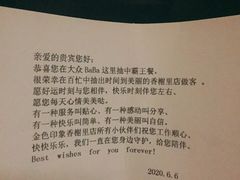 亲爱的贵宾您好：
恭喜您在大众BaBa这里抽中霸王餐，
很荣幸在百忙中抽出时间到美丽的香榭里店做客。
愿好运时刻与您相伴，快乐时刻伴您左右、
愿您每天心情美美哒。
有一种服务叫贴心、有一种感动叫分享、
有一种简单叫快乐、有一种美丽叫自信。
金色印象香榭里店所有小伙伴们祝您工作顺心、
快快乐乐，我们一直在您身边守护，给您陪伴、
Best wishes for you forever!
2020.6.6